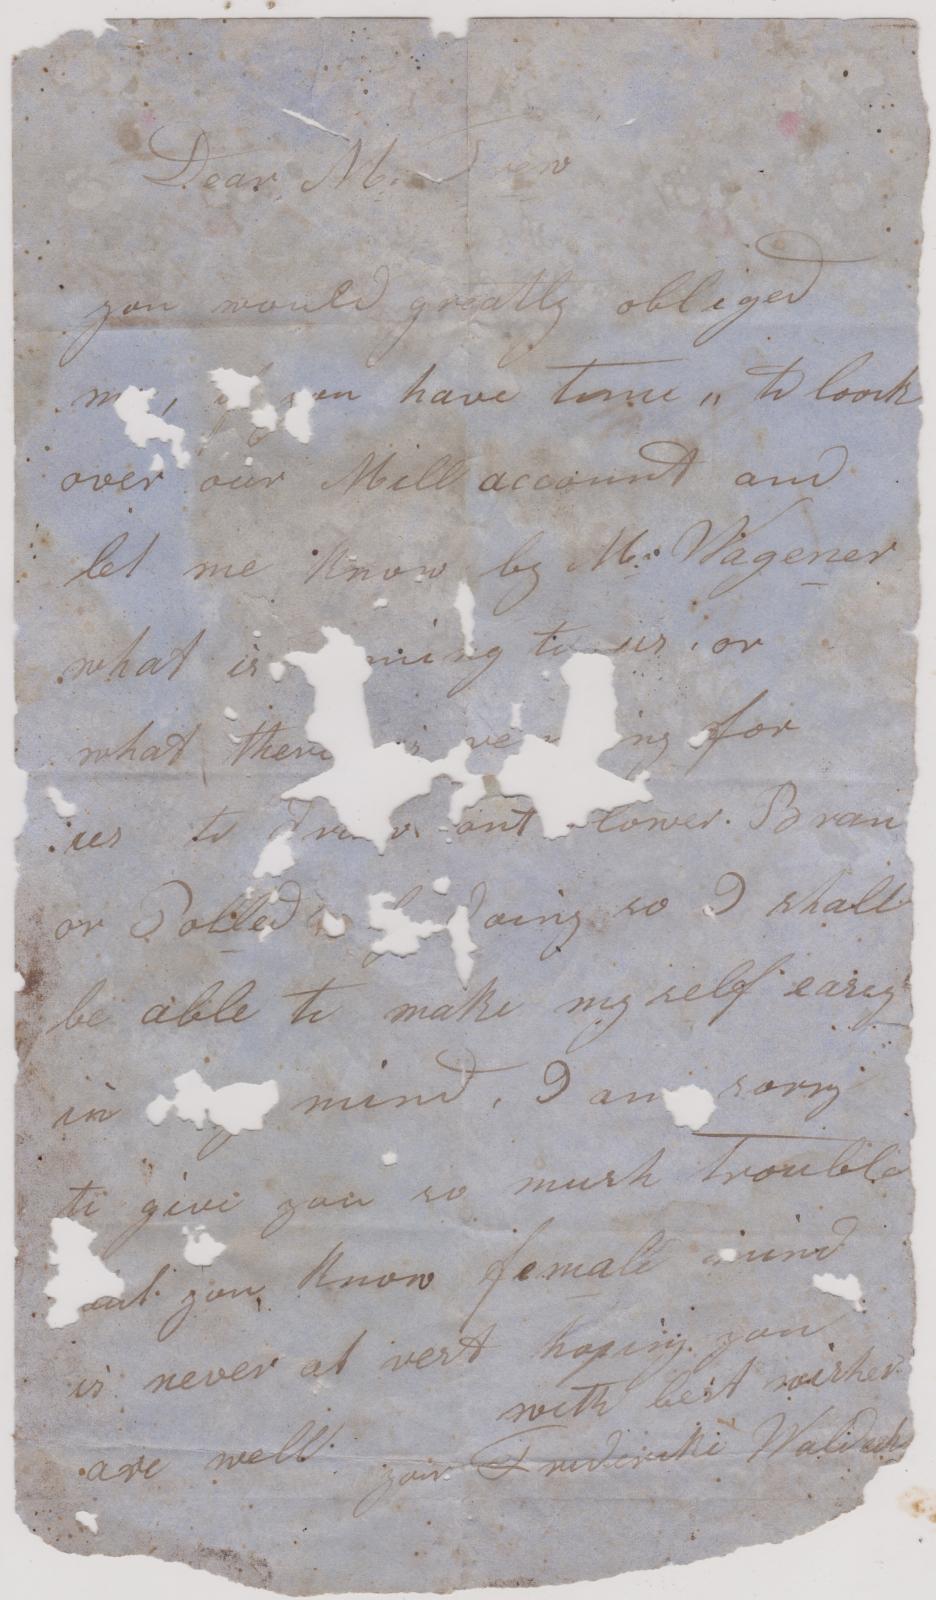 Dear Mr. Trew
you would greatly obliged
me, if you have time " to look
over our Mill account and
let me know by Mr. Wagener
what is coming to us, or
what there is ing for
us to out Bran
or Polled doing so I shall
be able to make my self easey
in mind, I am sorry
to give you so mush trouble
but you know female mind
is never at rest hoping you
are well with best wishes
your Frederike